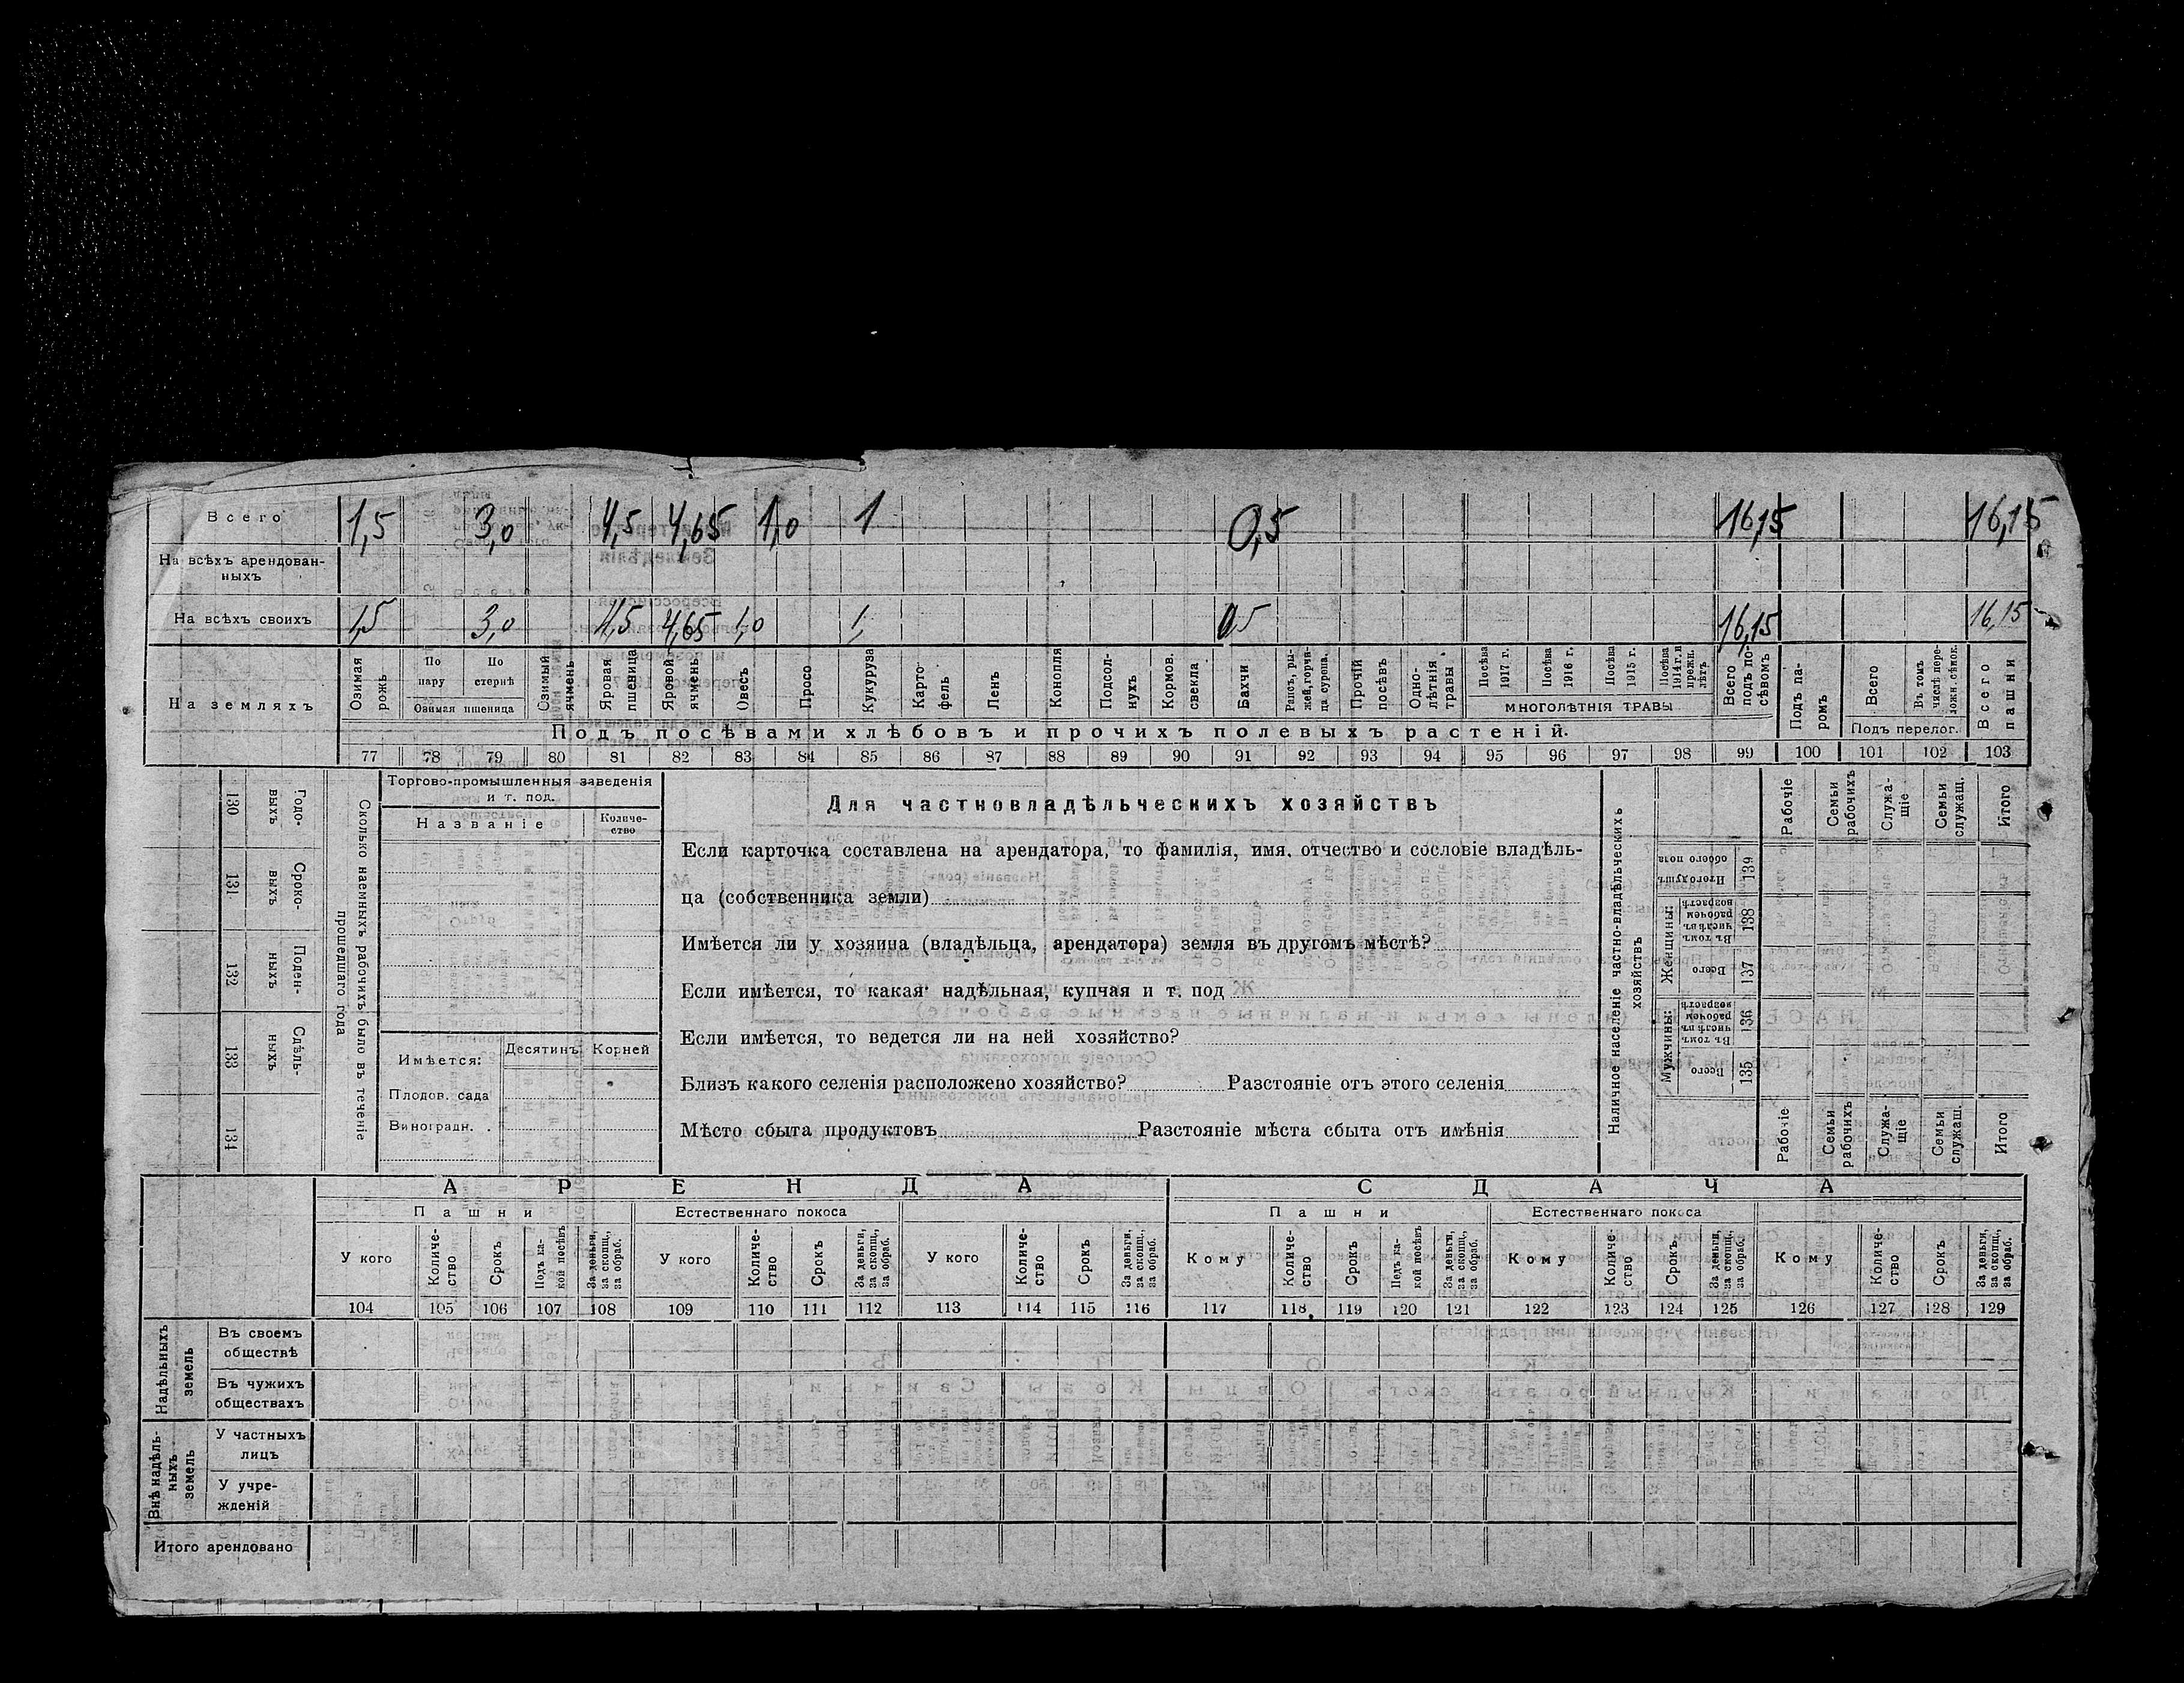 Всего 1,5 3,0 4,5 4,65 1,0 1 0,5 16,15 16,15
На всѣхъ арендован-
ныхъ
На всѣхъ своихъ 1,5 3,0 4,5 4,65 1,0 1, 0,5 16,15 16,15
На земляхъ
Озимая рожь
По пару
По стернѣ
Озимая пшеница
Озимый ячмень
Яровая пшеница
Яровой ячмень
Овесъ
Просо
Кукуруза
Карто-
фель
Ленъ
Конопля
Подсол-
нухъ
Кормов. свекла
Бахчи
Рапсъ, ры-
жей, горчи-
ца сурепа.
Прочій посѣвъ
Одно-
лѣтнія травы
Посѣва 1917 г.
Посѣва 1916 г.
Посѣва 1915 г.
Посѣва 1914 г. и прежн. лѣтъ
МНОГОЛѢТНІЯ ТРАВЫ
Всего подъ по-
сѣвомъ
Подъ па-
ромъ
Всего
Въ томъ числѣ пере-
ложн. сѣнок.
Подъ перелог.
Всего пашни
Подъ посѣвами хлѣбовъ и прочихъ полевыхъ растеній.
77 78 79 80 81 82 83 84 85 86 87 88 89 90 91 92 93 94 95 96 97 98 99 100 101 102 103
130 Годо-
выхъ
131 Сроко-
выхъ
132 Поден-
ныхъ
133 Сдѣль-
ныхъ
134
Сколько наемныхъ рабочихъ было въ теченіе
прошедшаго года
Торгово-промышленныя заведенія
и т. под.
Названіе
Количе-
ство
Имѣется:
Десятинъ Корней
Плодов. сада
Виноградн.
Для частновладѣльческихъ хозяйствъ
Если карточка составлена на арендатора, то фамилія, имя, отчество и сословіе владѣль-
ца (собственника земли)
Имѣется ли у хозяина (владѣльца, арендатора) земля въ другомъ мѣстѣ?
Если имѣется, то какая: надѣльная, купчая и т. под
Если имѣется, то ведется ли на ней хозяйство?
Близъ какого селенія расположено хозяйство? Разстояніе отъ этого селенія
Мѣсто сбыта продуктовъ Разстояніе мѣста сбыта отъ имѣнія
Наличное населеніе частно-владѣльческихъ
хозяйствъ
Мужчины:
Женщины:
Всего 135
Въ томъ числѣ въ рабочем возрастѣ 136
Всего 137
Въ томъ числѣ въ рабочем возрастѣ 138
Итого душъ обоего пола 139
Рабочіе
Семьи рабочихъ
Служа-
щіе
Семьи служащ.
Итого
Рабочіе
Семьи рабочихъ
Служа-
щіе
Семьи служащ.
Итого
АРЕНДА СДАЧА
Пашни Естественнаго покоса Пашни Естественнаго покоса
У кого
Количе-
ство
Срокъ
Подъ ка-
кой посѣвъ
За деньги, за скопщ., за обраб.
У кого
Количе-
ство
Срокъ
За деньги, за скопщ., за обраб.
У кого
Количе-
ство
Срокъ
За деньги, за скопщ., за обраб.
Кому
Количе-
ство
Срокъ
Подъ ка-
кой посѣвъ
За деньги, за скопщ., за обраб.
Кому
Количе-
ство
Срокъ
За деньги, за скопщ., за обраб.
Кому
Количе-
ство
Срокъ
За деньги, за скопщ., за обраб.
104 105 106 107 108 109 110 111 112 113 114 115 116 117 118 119 120 121 122 123 124 125 126 127 128 129
Надѣльныхъ земель
Въ своемъ
обществѣ
Въ чужихъ
обществахъ
Внѣ надѣль-
ныхъ земель
У частныхъ
лицъ
У учре-
жденій
Итого арендовано